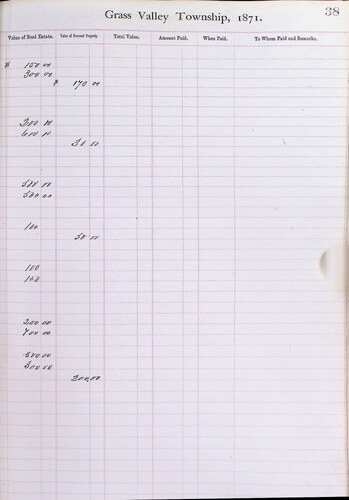 Grass Valley Township, 1871.
38
Value of Real Estate. Value of Personal Property. Total Value. Amount Paid. When Paid. To Whom Paid and Remarks.
$ 150 00
300 00
$ 170 00
300 00
600 00
50 00
500 00
100
50 00
100
100
200 00
700 00
600 00
300 00
200,00